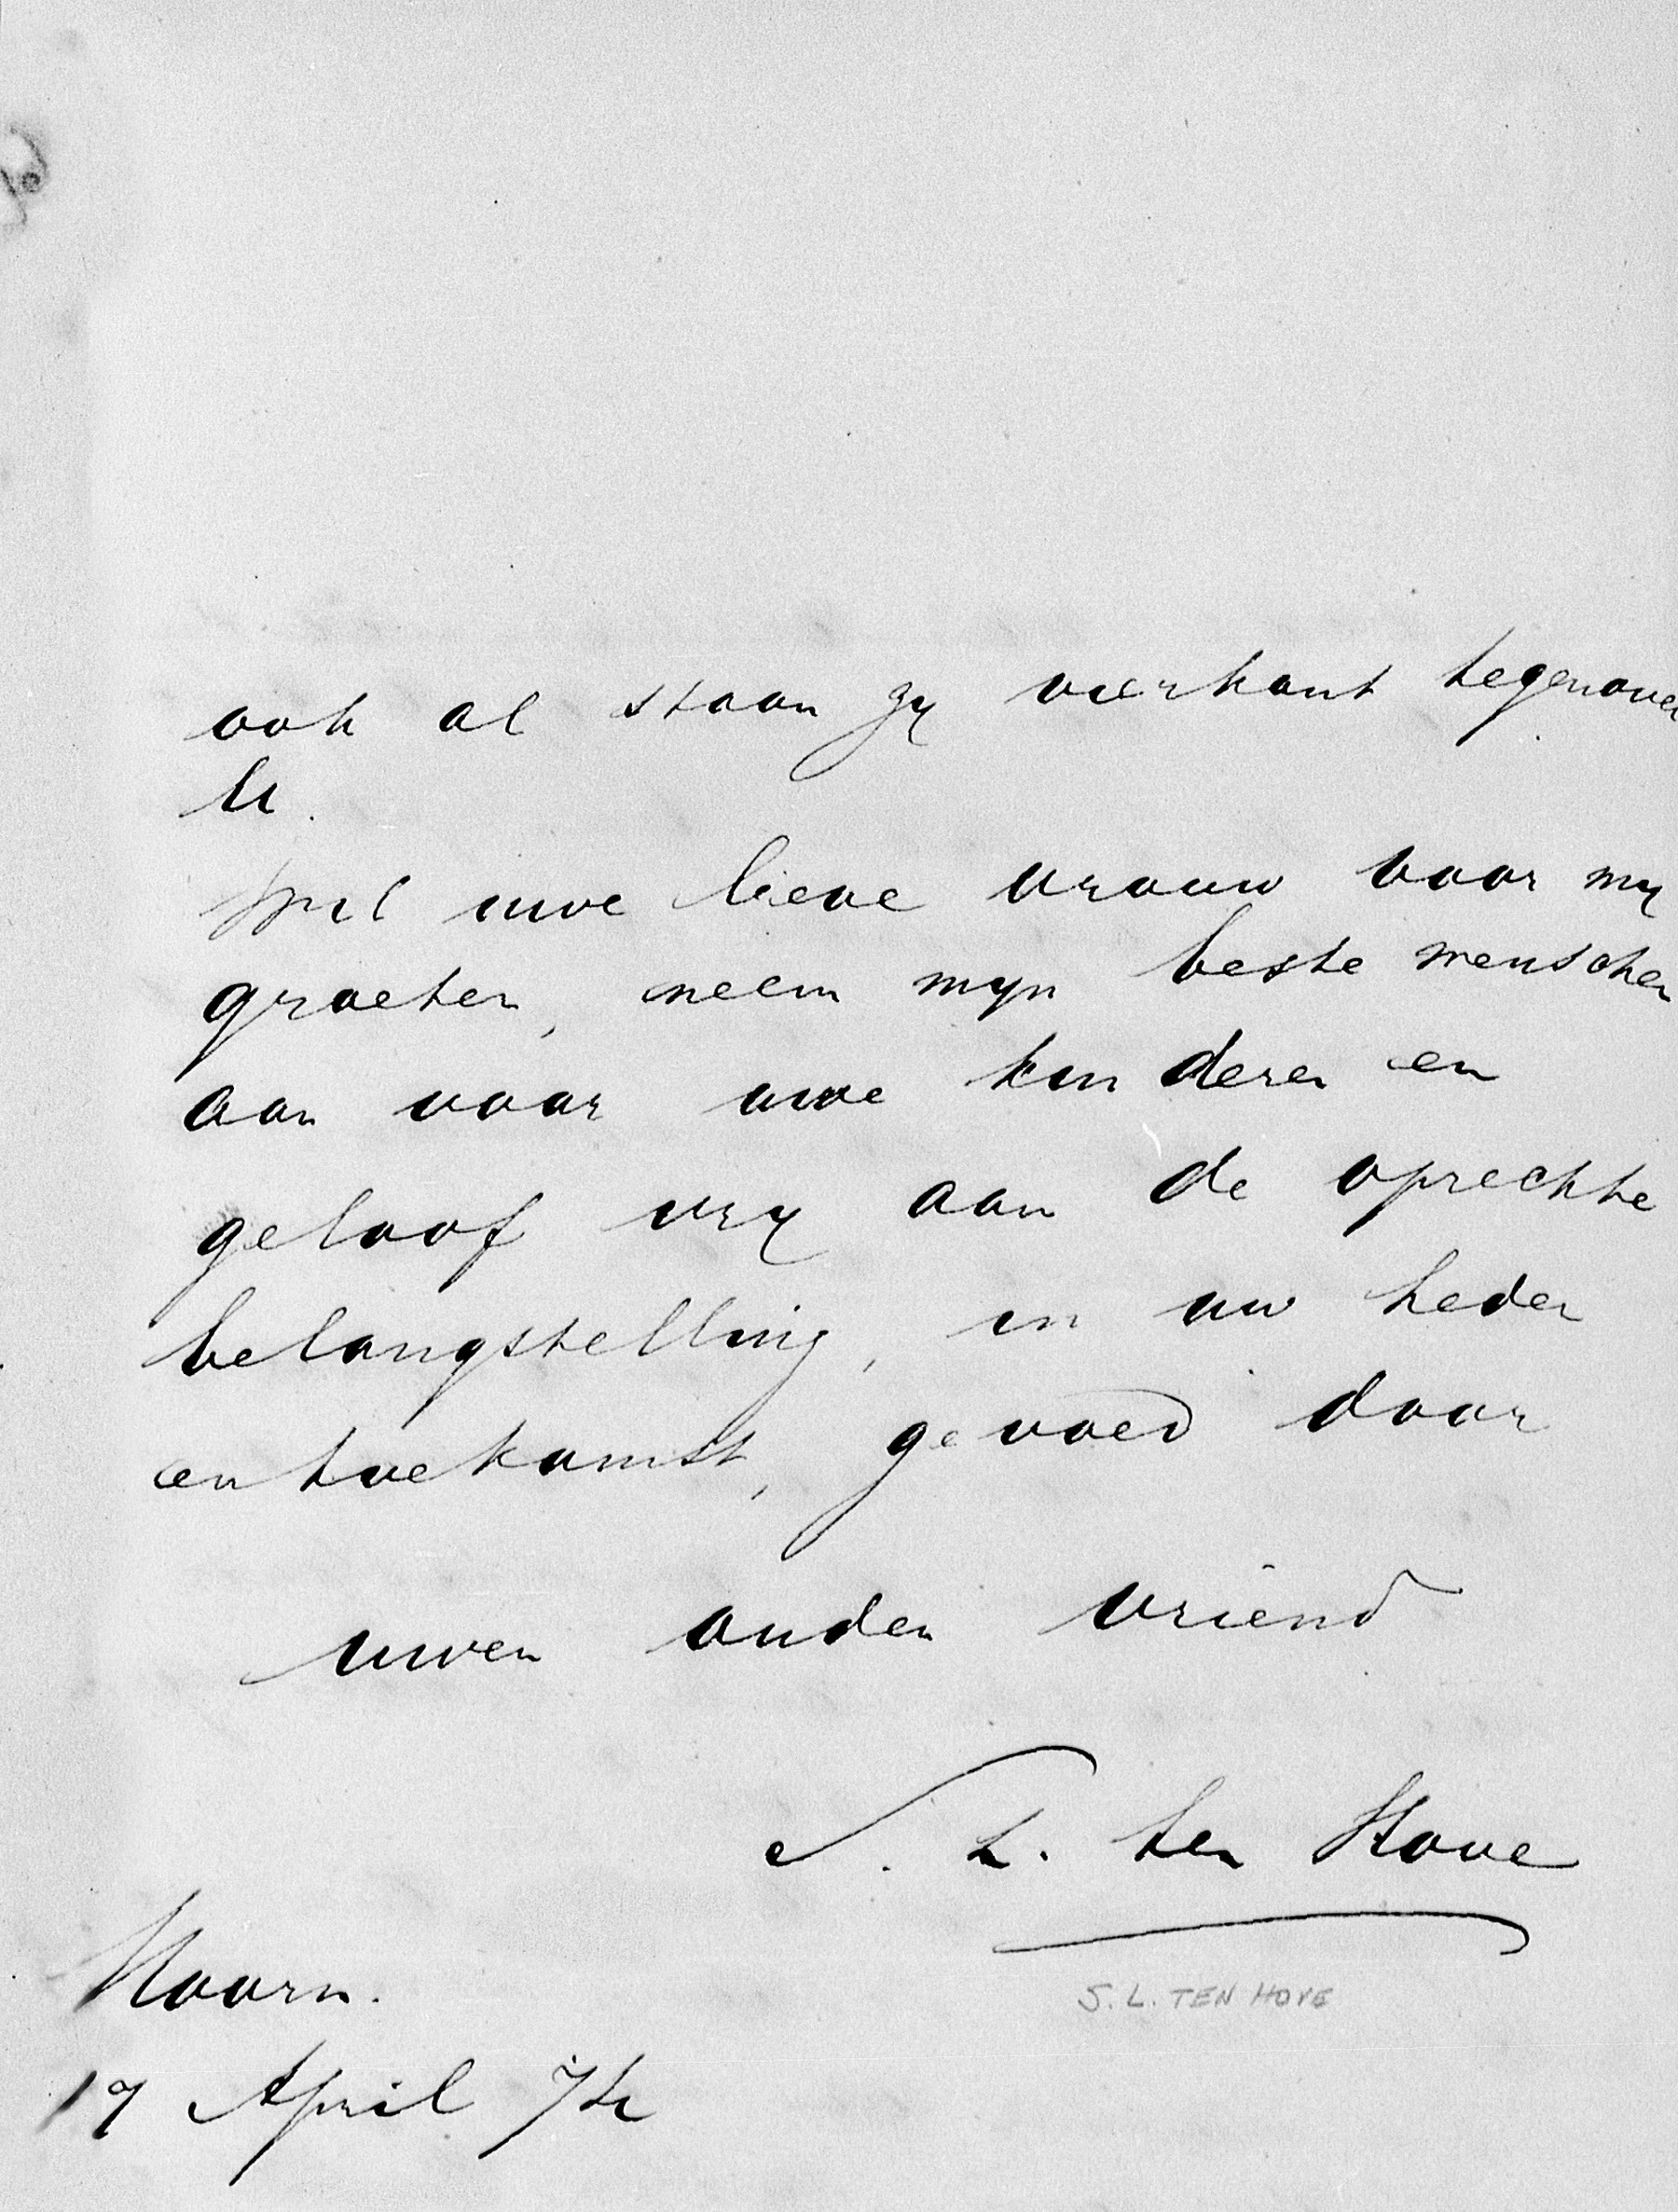 ook al staan zy vierkant tegenover
U.
Wil uwe lieve vrouw voor my
groeten, neem myn beste wenschen
aan voor uwe kinderen en
geloof vry aan de oprechte
belangstelling, in uw heden
en toekomst, gevoed door
uwen ouden vriend
S. L. ten Hove
S. L. TEN HOVE
Hoorn.
17 April 74